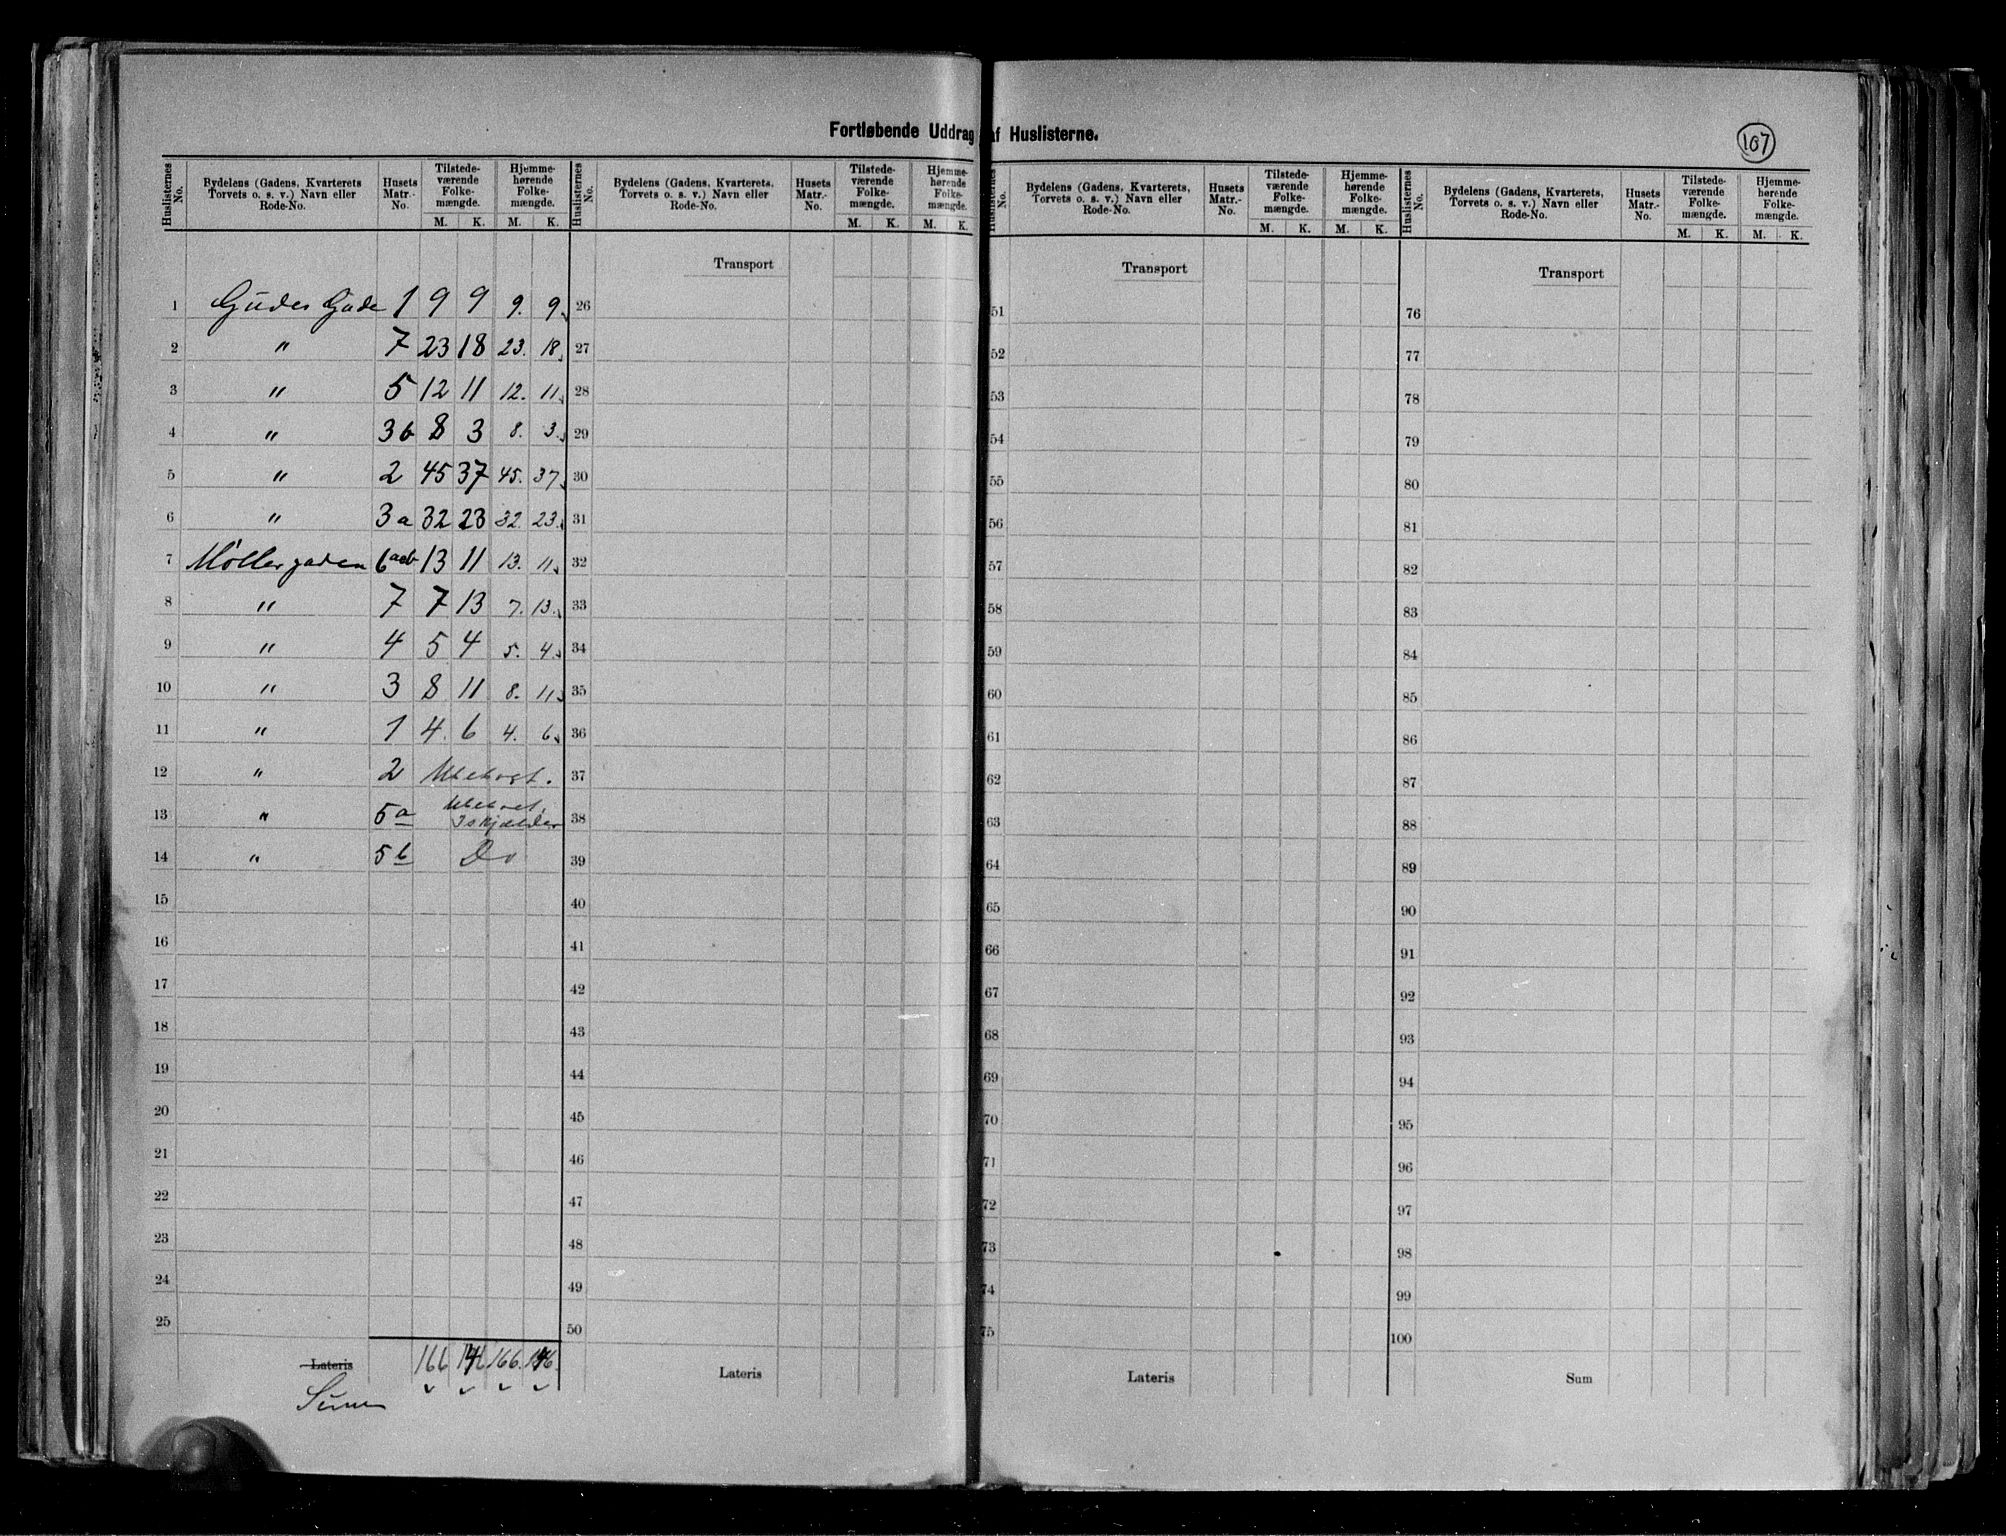 Fortløbende Uddrag af Huslisterne.
107
Huslisternes No. Bydelens (Gadens, Kvarterets Torvets o. s. v.) Navn eller Rode-No. Husets Matr.-No. Tilstedeværende Folkemængde. M. K. Hjemmehørende Folkemængde. M. K.
1 Gudes Gade 1 9 9 9. 9.
2 " 7 23 18 23. 18.
3 " 5 12 11 12. 11.
4 " 3b 8 3 8. 3.
5 " 2 45 37 45. 37.
6 " 3a 32 23 32. 23.
7 Møllergaden 6 aeb 13 11 13. 11.
8 " 7 7 13 7. 13.
9 " 4 5 4 5. 4.
10 " 3 8 11 8. 11.
11 " 1 4. 6 4. 6.
12 " 2 Ubebygt.
13 " 5a Ubeboet, Iskjælder
14 " 5b Do
15
16
17
18
19
20
21
22
23
24
25
Lateris 166 146 166. 146.
Sum
Huslisternes No. Bydelens (Gadens, Kvarterets, Torvets o. s. v.) Navn eller Rode-No. Husets Matr.-No. Tilstedeværende Folkemængde. M. K. Hjemmehørende Folkemængde. M. K.
Transport
26
27
28
29
30
31
32
33
34
35
36
37
38
39
40
41
42
43
44
45
46
47
48
49
50
Lateris
Huslisternes No. Bydelens (Gadens, Kvarterets, Torvets o. s. v.) Navn eller Rode-No. Husets Matr.-No. Tilstedeværende Folkemængde. M. K. Hjemmehørende Folkemængde. M. K.
Transport
51
52
53
54
55
56
57
58
59
60
61
62
63
64
65
66
67
68
69
70
71
72
73
74
75
Lateris
Huslisternes No. Bydelens (Gadens, Kvarterets, Torvets o. s. v.) Navn eller Rode-No. Husets Matr.-No. Tilstedeværende Folkemængde. M. K. Hjemmehørende Folkemængde. M. K.
Transport
76
77
78
79
80
81
82
83
84
85
86
87
88
89
90
91
92
93
94
95
96
97
98
99
100
Sum